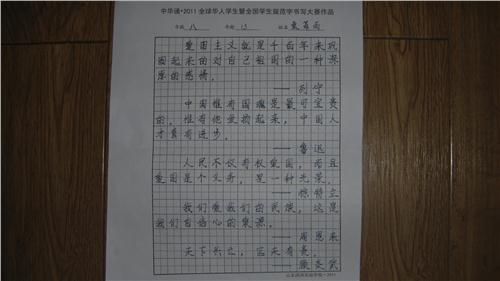 中华诵•2011全球华人学生暨全国学生规范字书写大赛作品
年级 八 年龄 13 姓名
爱国主义就是千百年来巩
固起来的对自己祖国的一种深
厚的感情。
——列宁
中国惟有国魂是最可宝贵
的,惟有他发扬起来,中国人
才有真进步。
——鲁迅
人民不仅有权爱国,而且
爱国是个义务,是一种光荣。
——徐特立
我们爱我们的民族,这是
我们自信心的泉源。
——周恩来
天下兴亡,匹夫有责。
——顾炎武